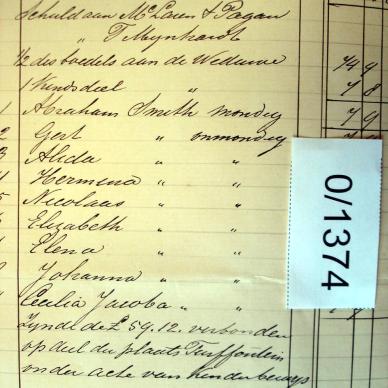 Schuld aan McLaren & Pagan
" T Meynhardt
1/2 des boedels aan de Weduwe 74 9
1 Kindsdeel " 7 8
1 Abraham Smith mondig 7 9
2 Gert " onmondig
3 Alida " "
4 Hermina " "
5 Nicolaas " "
6 Elizabeth "
Elena "
Johanna "
Cecilia Jacoba " "
Zijnde de £59.12. verbonden
op deel der plaats Turffontein
onder acte van Kinderbewys
0/1374